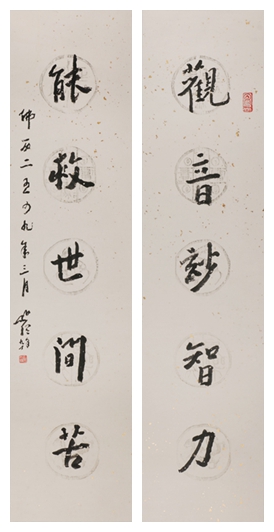 觀音玅智力
能救世間苦
佛二五四九年三月